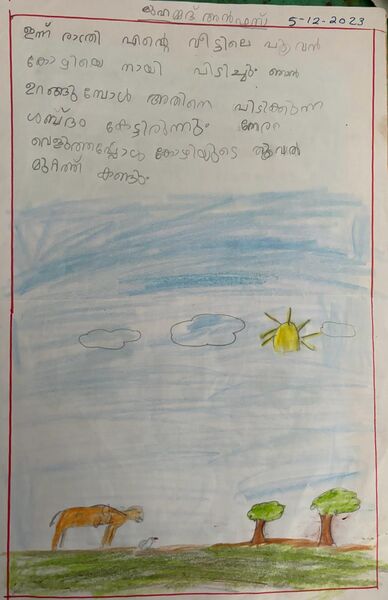 മുഹമ്മദ് അൻഫസ് 5-12-2023
ഇന്ന് രാത്രി എന്റെ വീട്ടിലെ പൂവൻ
കോഴിയെ നായി പിടിച്ചും ഞാൻ
ഉറങ്ങുമ്പോൾ അതിനെ പിടിക്കുന്ന
ശബ്ദം കേട്ടിരുന്നും നേരം
വെളുത്തപ്പോൾ കോഴിയുടെ തൂവൽ
മുറ്റത്ത് കണ്ടും